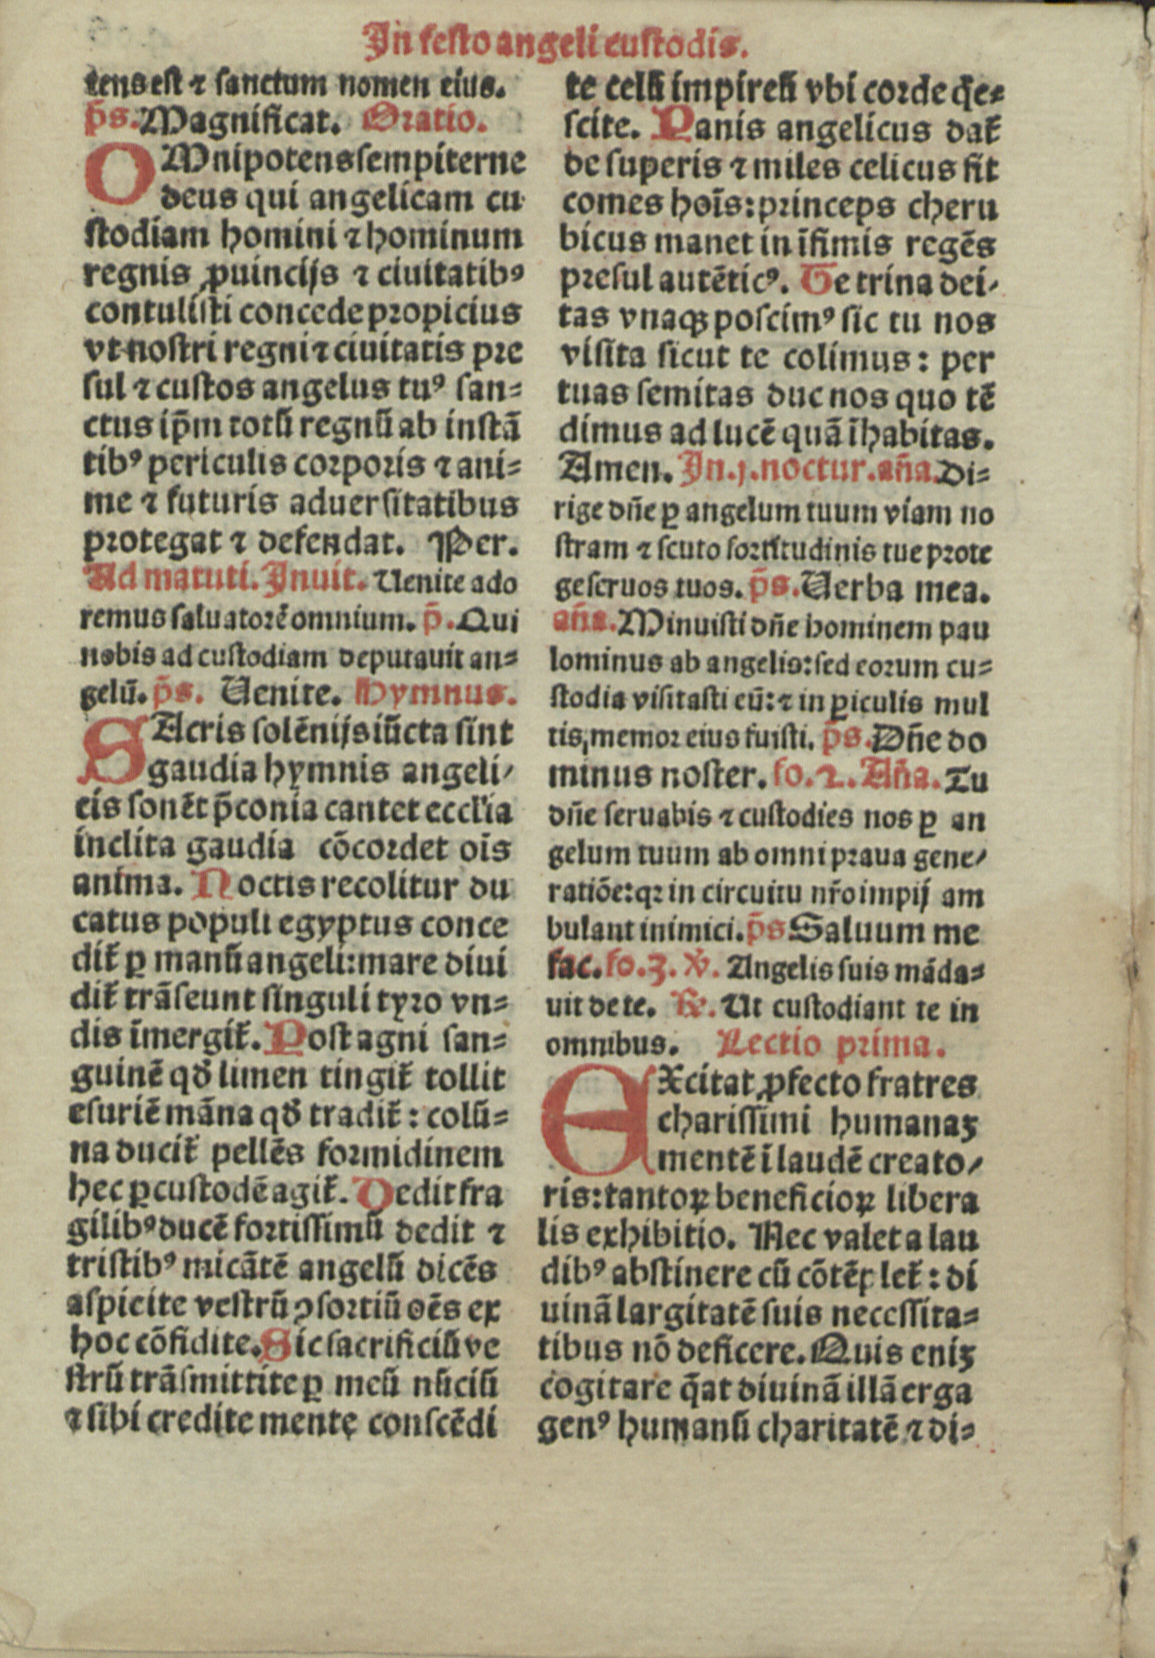 In festo angeli custodis.
tens est ⁊ sanctum nomen eius.
p̄s. Magnificat. Oratio.
OMnipotens sempiterne
deus qui angelicam cu
stodiam homini ⁊ hominum
regnis ꝓuincijs ⁊ ciuitatibꝰ
contulisti concede propicius
vt nostri regni ⁊ ciuitatis pre
sul ⁊ custos angelus tuꝰ san-
ctus ip̄m totū regnū ab instā
tibꝰ periculis corporis ⁊ ani-
me ⁊ futuris aduersitatibus
protegat ⁊ defendat. Per.
Ad matuti. Inuit. Uenite ado
remus saluatorē omnium. p̄. Qui
nobis ad custodiam deputauit an-
gelū. p̄s. Uenite. Hymnus.
SAcris solēnijs iūcta sint
gaudia hymnis angeli-
cis sonēt p̄conia cantet eccl'ia
inclita gaudia cōcordet oīs
anima. Noctis recolitur du
catus populi egyptus conce
dit᷑ ꝑ manū angeli: mare diui
dit᷑ trāseunt singuli tyro vn-
dis īmergit᷑. Post agni san-
guinē qđ limen tingit᷑ tollit
esuriē māna qđ tradit᷑: colū-
na ducit᷑ pellēs formidinem
hec ꝑ custodē agit᷑. Dedit fra
gilibꝰ ducē fortissimū dedit ⁊
tristibꝰ micātē angelū dicēs
aspicite vestrū ꝯsortiū oēs ex
hoc cōfidite. Sic sacrificiū ve
strū trāsmittite ꝑ meū nūciū
⁊ sibi credite mente conscēdi
te celū impireū vbi corde q̄e-
scite. Panis angelicus dat᷑
de superis ⁊ miles celicus fit
comes hoīs: princeps cheru
bicus manet in īfimis regēs
presul autēticꝰ. Te trina dei-
tas vnaqꝫ poscimꝰ sic tu nos
visita sicut te colimus: per
tuas semitas duc nos quo tē
dimus ad lucē quā īhabitas.
Amen. In .j. noctur. an̄a. Di-
rige dn̄e ꝑ angelum tuum viam no
stram ⁊ scuto fortitudinis tue prote
ge seruos tuos. p̄s. Uerba mea.
an̄a. Minuisti dn̄e hominem pau
lominus ab angelis: sed eorum cu-
stodia visitasti eū: ⁊ in ꝑiculis mul
tis, memor eius fuisti. p̄s. Dn̄e do
minus noster. fo. 2. An̄a. Tu
dn̄e seruabis ⁊ custodies nos ꝑ an
gelum tuum ab omni praua gene-
ratiōe: qꝛ in circuitu nr̄o impij am
bulant inimici. p̄s Saluum me
fac. fo. 3. ℣. Angelis suis māda-
uit de te. ℟. Ut custodiant te in
omnibus. Lectio prima.
EXcitat ꝓfecto fratres
charissimi humanaꝫ
mentē ī laudē creato-
ris: tantoꝝ beneficioꝝ libera
lis exhibitio. Nec valet a lau
dibꝰ abstinere cū cōtēplet᷑: di
uinā largitatē suis necessita-
tibus nō deficere. Quis eniꝫ
cogitare q̄at diuinā illā erga
genꝰ humanū charitatē ⁊ di-